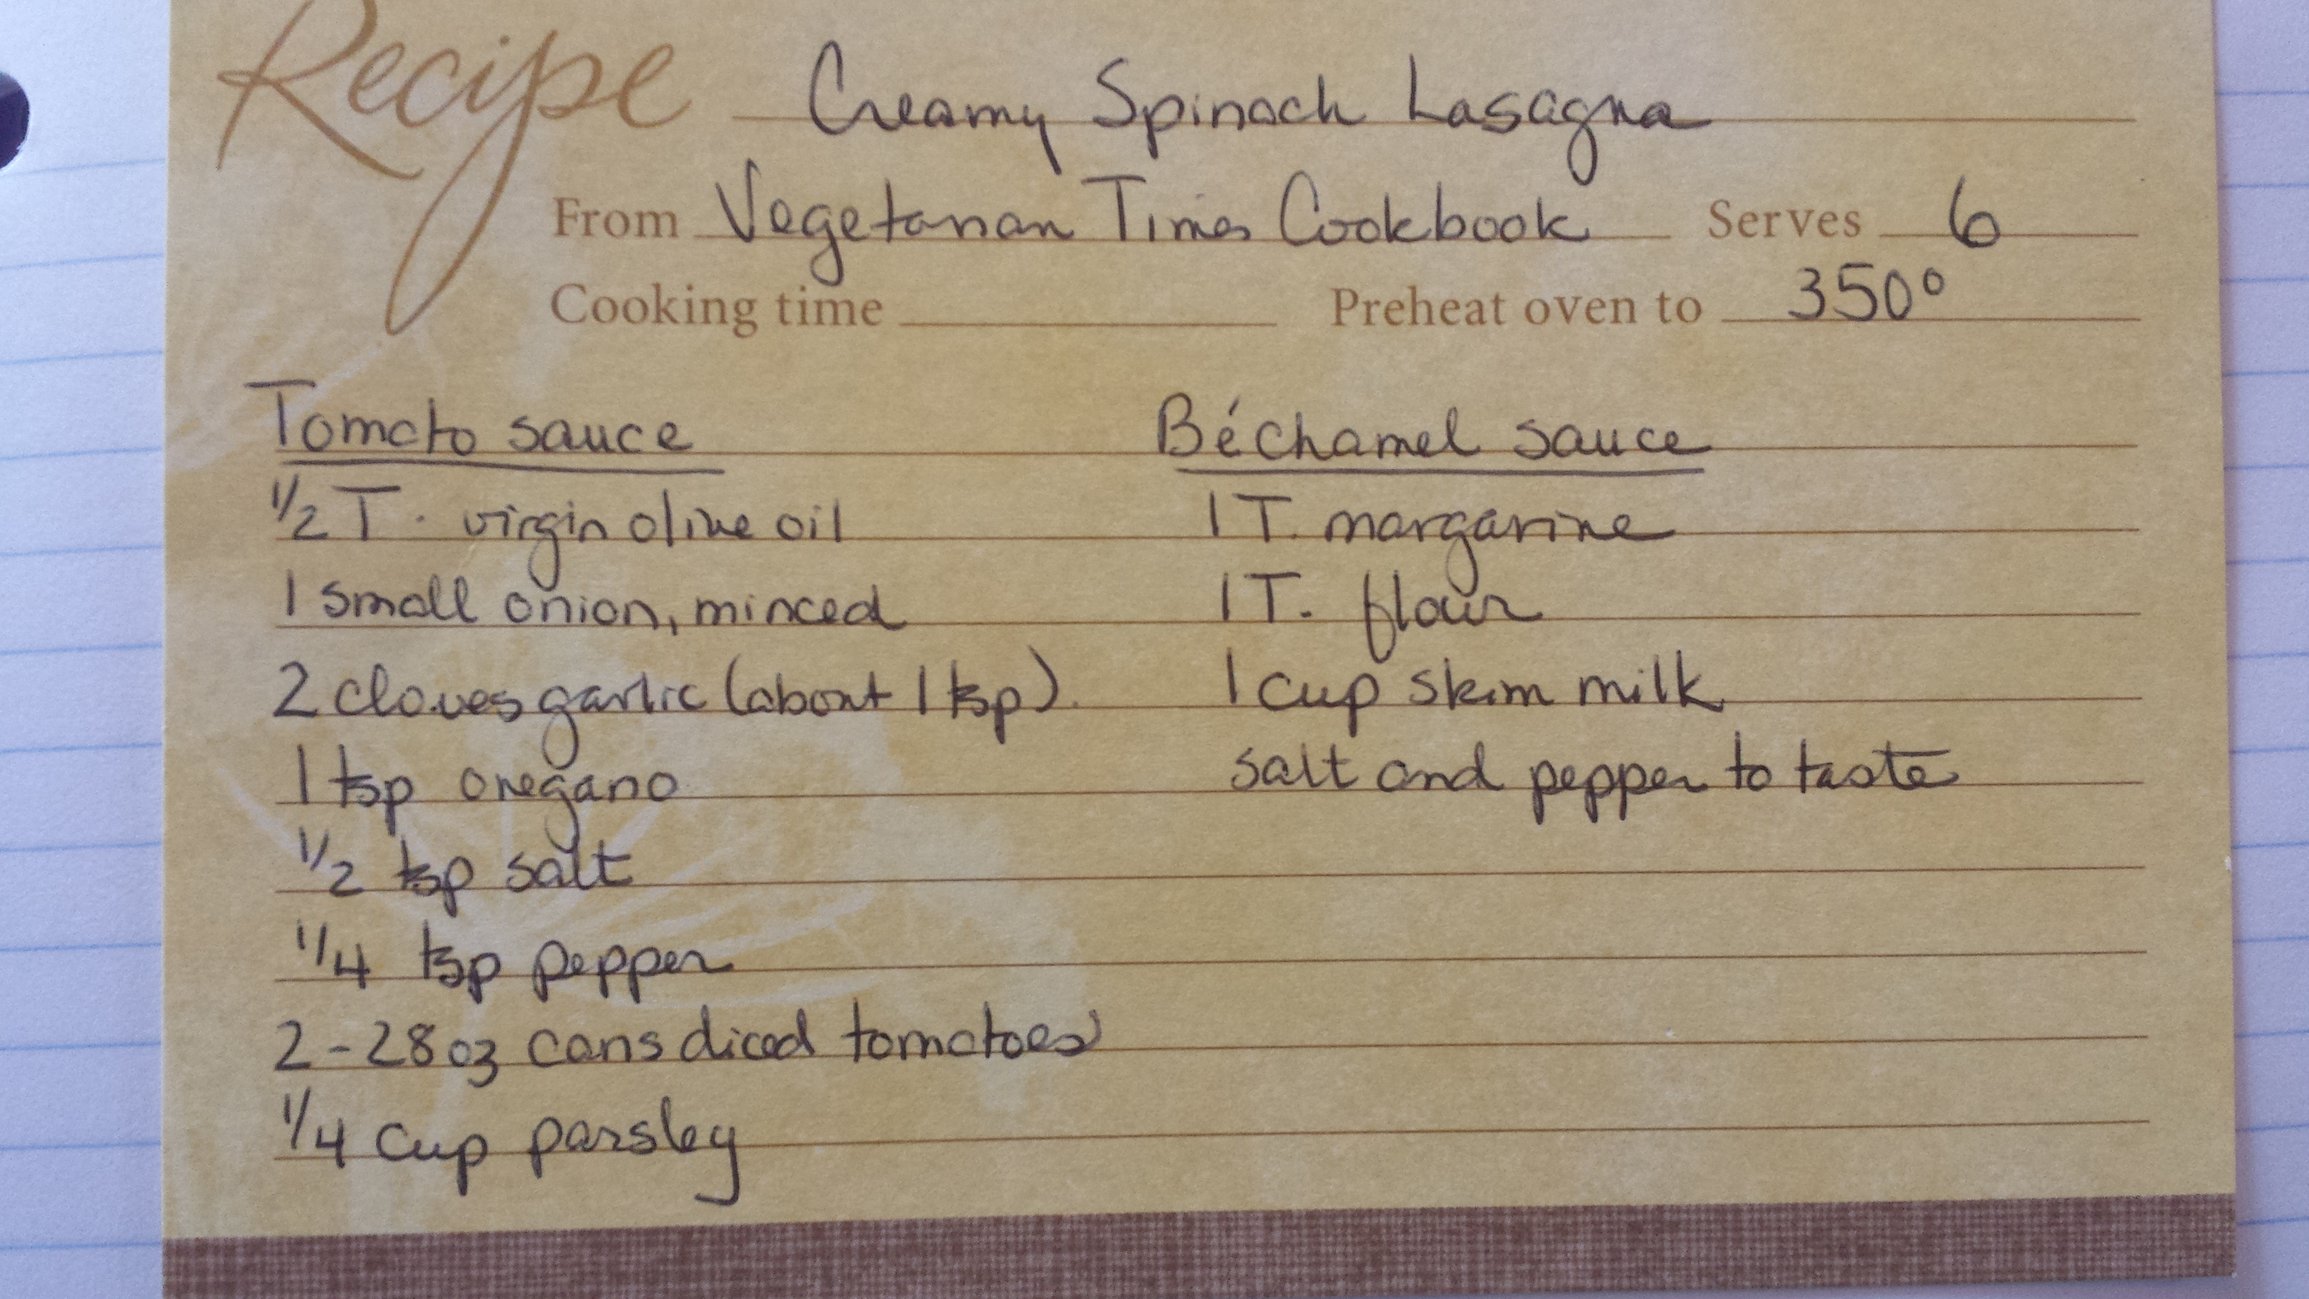 Recipe Creamy Spinach Lasagna
From Vegetarian Times Cookbook Serves 6
Cooking time Preheat oven to 350°
Tomato sauce
1/2 T. virgin olive oil
1 small onion, minced
2 cloves garlic (about 1 tsp).
1 tsp oregano
1/2 tsp salt
1/4 tsp pepper
2-28 oz cans diced tomatoes
1/4 cup parsley
Béchamel sauce
1 T. margarine
1 T. flour
1 cup skim milk
salt and pepper to taste